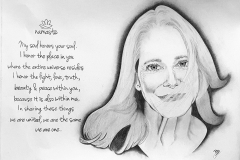 namaste
My soul honors your soul.
I honor the place in you
where the entire universe resides.
I honor the light, love, truth,
beauty & peace within you,
because it is also within me.
In sharing these things
we are united, we are the same
we are one.